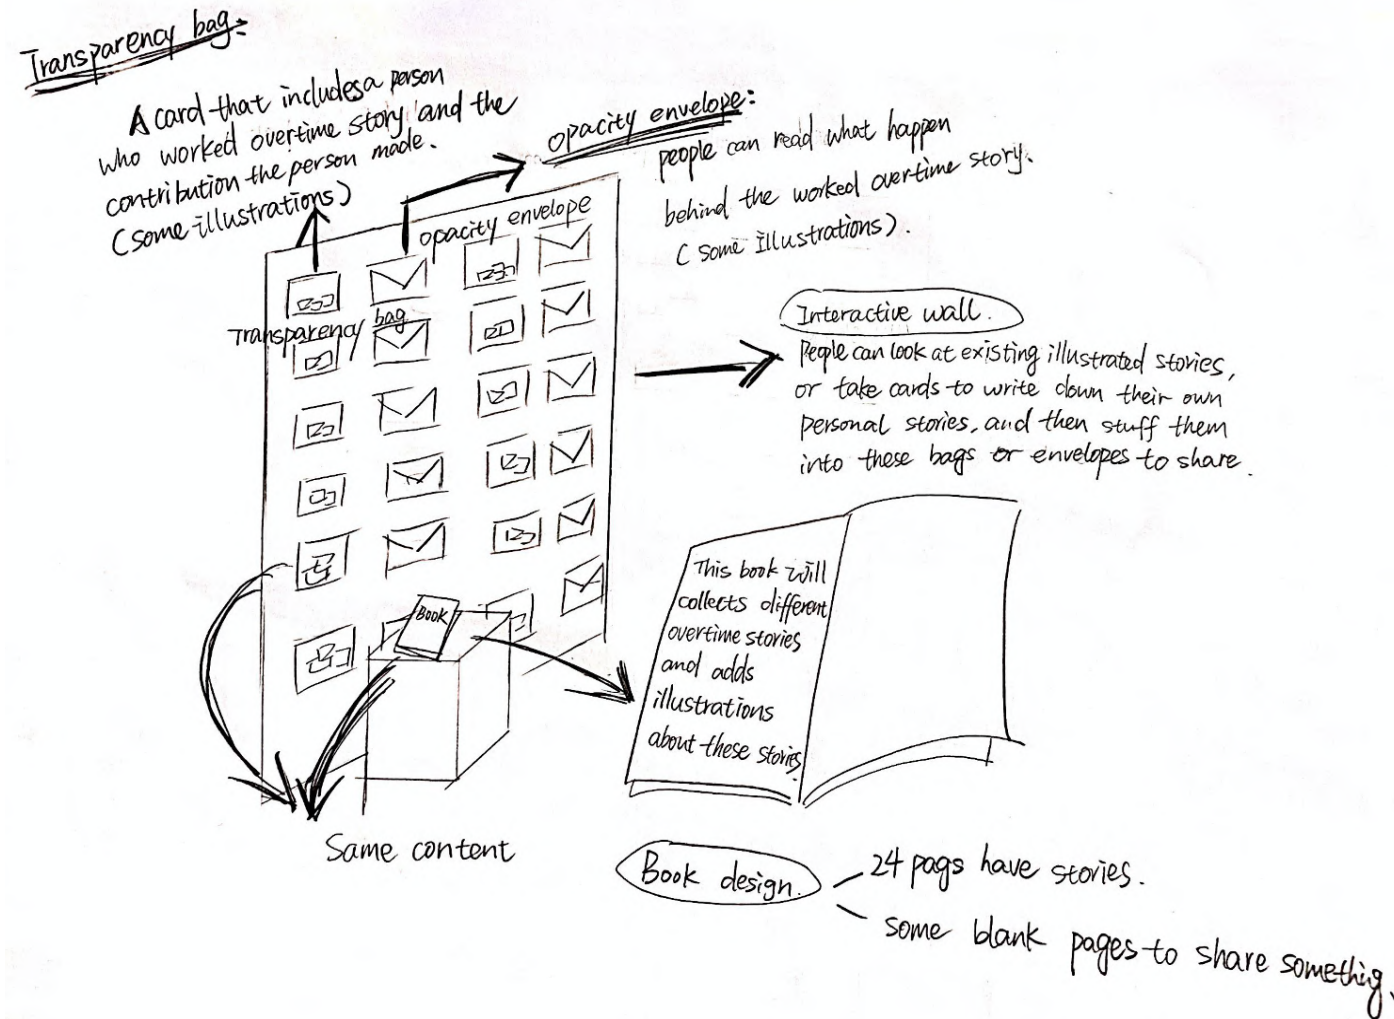 Transparency bag:
A card that includes a person
who worked overtime story and the
contribution the person made.
(some illustrations)
opacity envelope:
people can read what happen
behind the worked overtime story.
(some illustrations).
opacity envelope
Transparency bag
Interactive wall.
People can look at existing illustrated stories,
or take cards to write down their own
personal stories, and then stuff them
into these bags or envelopes to share.
BOOK
This book will
collects different
overtime stories
and adds
illustrations
about these stories.
Same content
Book design.
24 pags have stories.
some blank pages to share something.